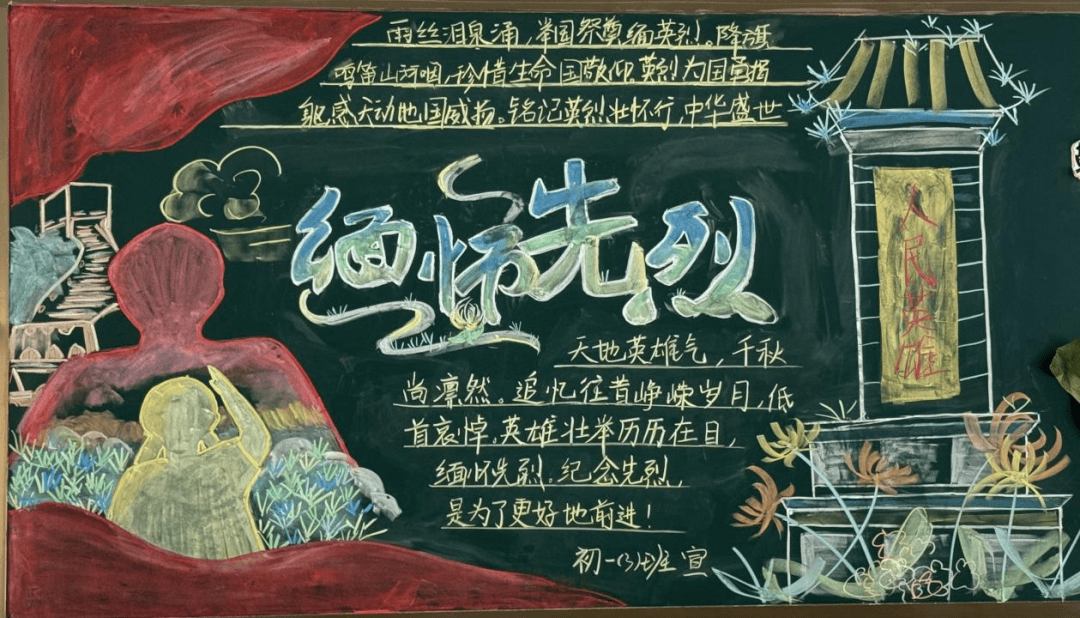 雨丝泪泉涌，举国祭尊缅英烈。降旗
鸣笛山河咽，珍惜生命国敬仰英烈为国勇捐
躯感天动地国威扬。铭记英烈壮怀行，中华盛世
缅怀先烈
人民英雄
天地英雄气，千秋
尚凛然。追忆往昔峥嵘岁月，低
首哀悼，英雄壮举历历在目，
缅怀先烈。纪念先烈，
是为了更好地前进！
初一(3)班 宣